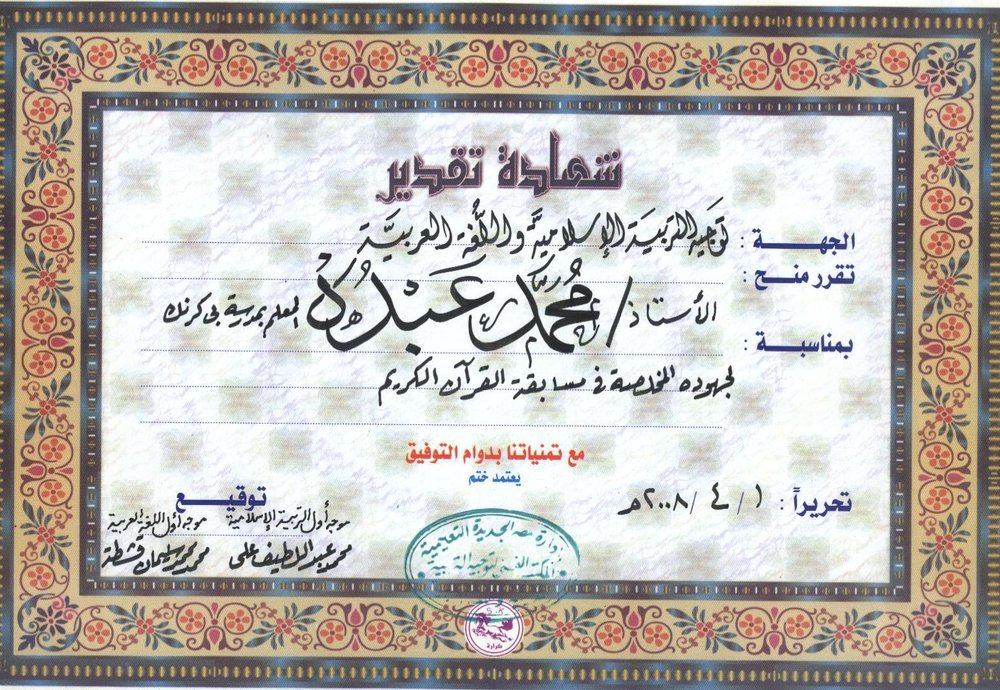 شهادة تقدير
الجهة : توجيه التربية الإسلامية واللُّغة العربيَّة
تقرر منح :
الأستاذ / مُحمد عَبْدُهْ المعلم بمدرسة بى كرنك
بمناسبة :
لجهوده المخلصة فى مسابقة القرآن الكريم
مع تمنياتنا بدوام التوفيق
يعتمد ختم
تحريراً : ١ / ٤ / ٢٠٠٨م
توقيع
موجه أول التربية الإسلامية
محمد عبد اللطيف على
موجه أول اللغة العربية
محمد سليمان قشطة
إدارة مصر الجديدة التعليمية